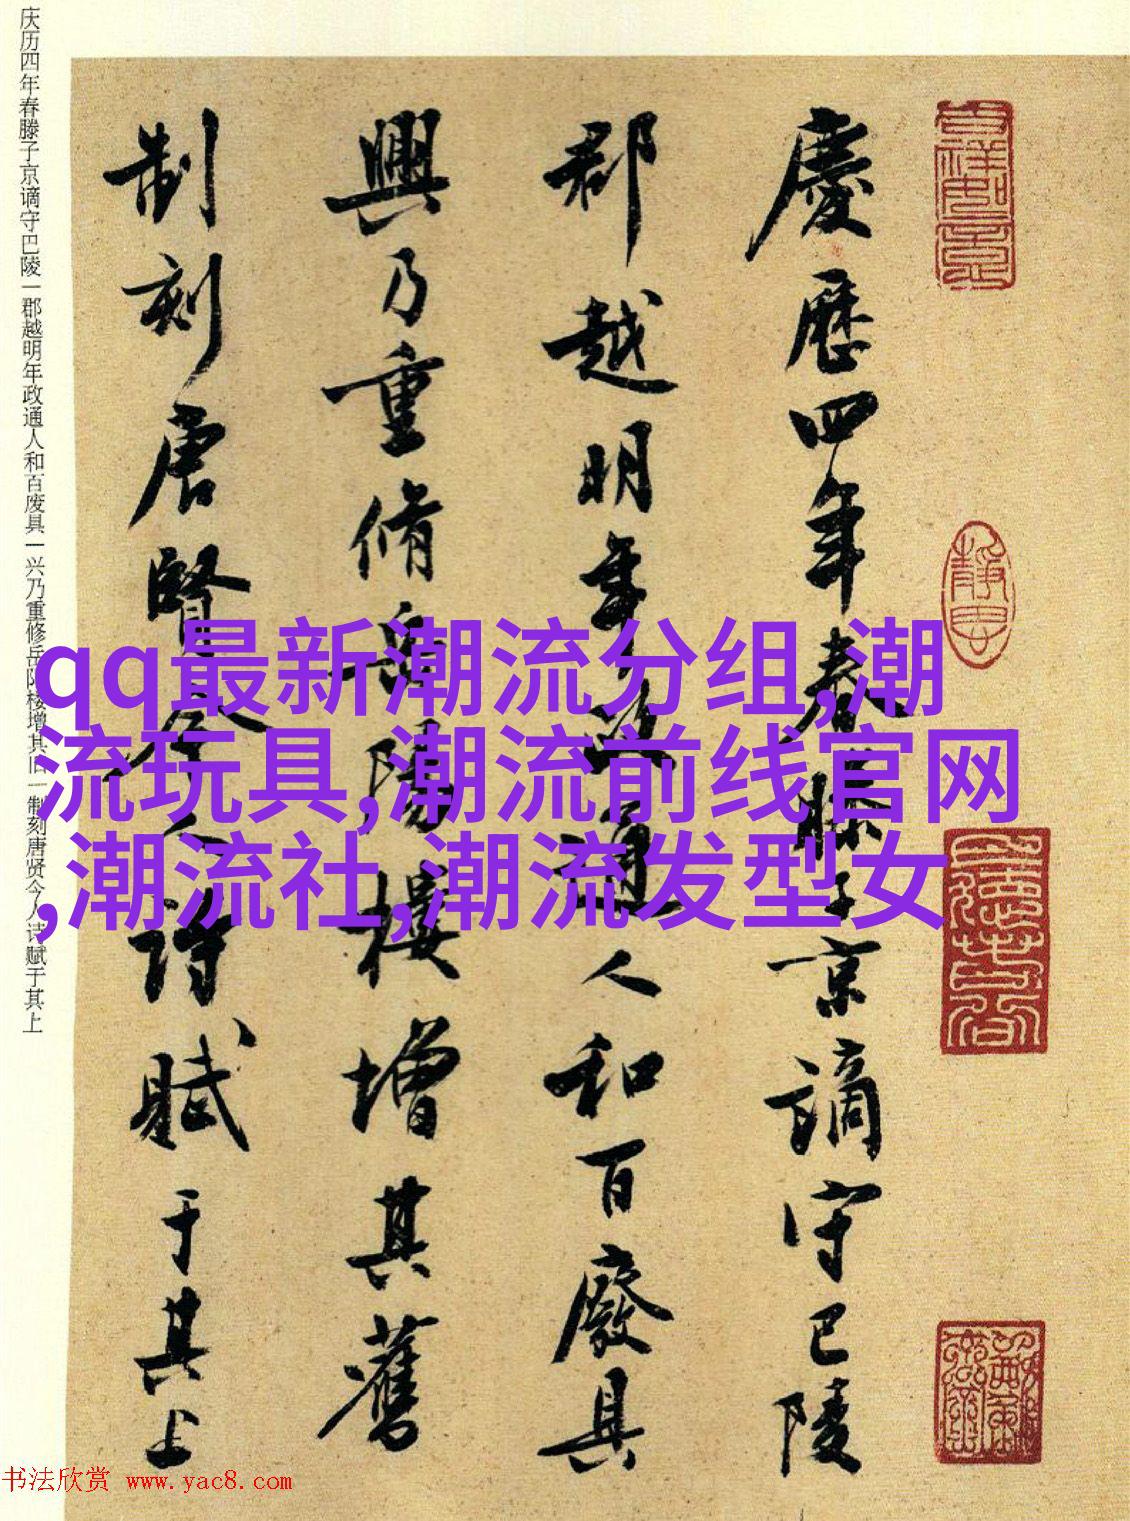 慶歷四年春滕子京謫守巴陵
郡越明年政通人和百廢具
興乃重脩岳陽樓增其舊
制刻唐賢今人詩賦于其上
庆历四年春滕子京谪守巴陵一郡越明年政通人和百废具一兴乃重修岳阳楼增其旧一制刻唐贤今人诗赋于其上
qq最新潮流分组,潮
流玩具,潮流前线官网
,潮流社,潮流发型女
书法欣赏 www.yac8.com